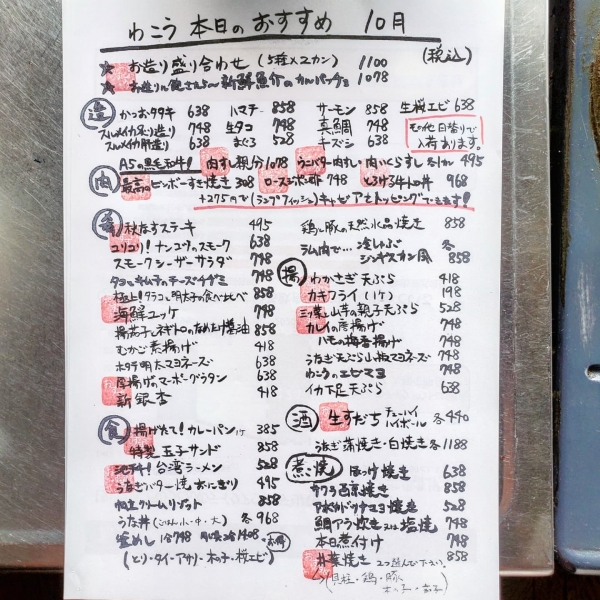 わこう 本日のおすすめ 10月
(税込)
★ お造り盛り合わせ (5種×2カン) 1100
★ お造りに飽きたら〜新鮮魚介のカルパッチョ 1078
造 かつおタタキ 638 ハマチ 858 サーモン 858 生桜エビ 638
スルメイカ造り 748 生タコ 748 真鯛 748
スルメイカ肝造り 748 まぐろ 528 チーズシ 638
その他日替りで入荷あります。
A5の黒毛和牛! 肉すし視分 1078 ウニバター肉すし・肉いくらすし 各1カン 495
肉 最高のビンボーすき焼き 308 ロースジポン酢 748 とろける牛トロ丼 968
+275円で(ランプフィッシュ)キャビアをトッピングできます!
秋なすステーキ 495
コリコリ!ナンコツのスモーク 638
スモークシーザーサラダ 748
タコとキムチのチーズチヂミ 748
極上!タラコと明太子の食べ比べ 858
海鮮ユッケ 748
揚茄子とネギトロのなめたけ醤油 858
むかご素揚げ 418
ホタテ明太マヨネーズ 638
厚揚げのマーボーグラタン 638
新銀杏 418
鶏と豚の天然水晶焼き 858
ラム肉で… 冷しゃぶ ジンギスカン風 各858
揚 わかさぎ天ぷら 418
カキフライ(1ケ) 198
三つ葉と山芋の親子天ぷら 528
カレイの唐揚げ 748
ハモの梅香揚げ 748
うなぎ天ぷら山椒マヨネーズ 748
わこうのエビマヨ 748
イカ下足天ぷら 638
酒 生すだち チューハイ ハイボール 各440
食 揚げたて!カレーパン 1ケ 385
特製 玉子サンド 858
台湾ラーメン 528
うなぎバター焼おにぎり 495
帆立クリームリゾット 858
うな丼(ごはん小・中・大) 各968
釜めし 1合748
(とり・タイ・アサリ・木の子・桜エビ)
うなぎ蒲焼き・白焼き 各1188
煮・焼 ほっけ焼き 638
サワラ西京焼き 858
アボカドツナマヨ焼き 528
鯛アラ炊き又は塩焼 748
本日煮付け 748
朴葉焼き 2つ選んで下さい。 858
(貝柱・鶏・豚
木の子・茄子)